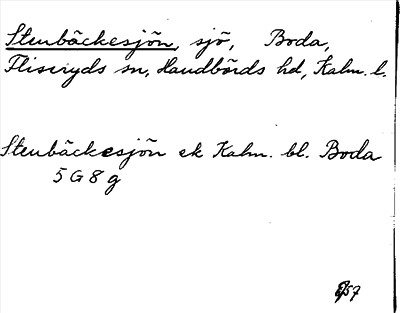 Stenbäckesjön, sjö, Boda,
Fliseryds sn, Handbörds hd, Kalm. l.
Stenbäckesjön ek Kalm. bl. Boda
5 G 8 g